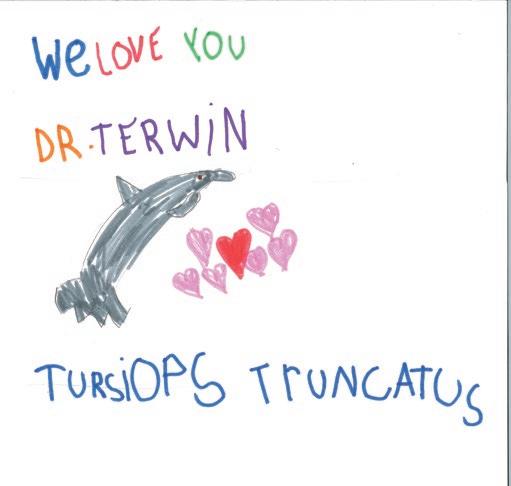 We LOVE YOU
DR. TERWiN
TURSiOPS TrUNCATUS